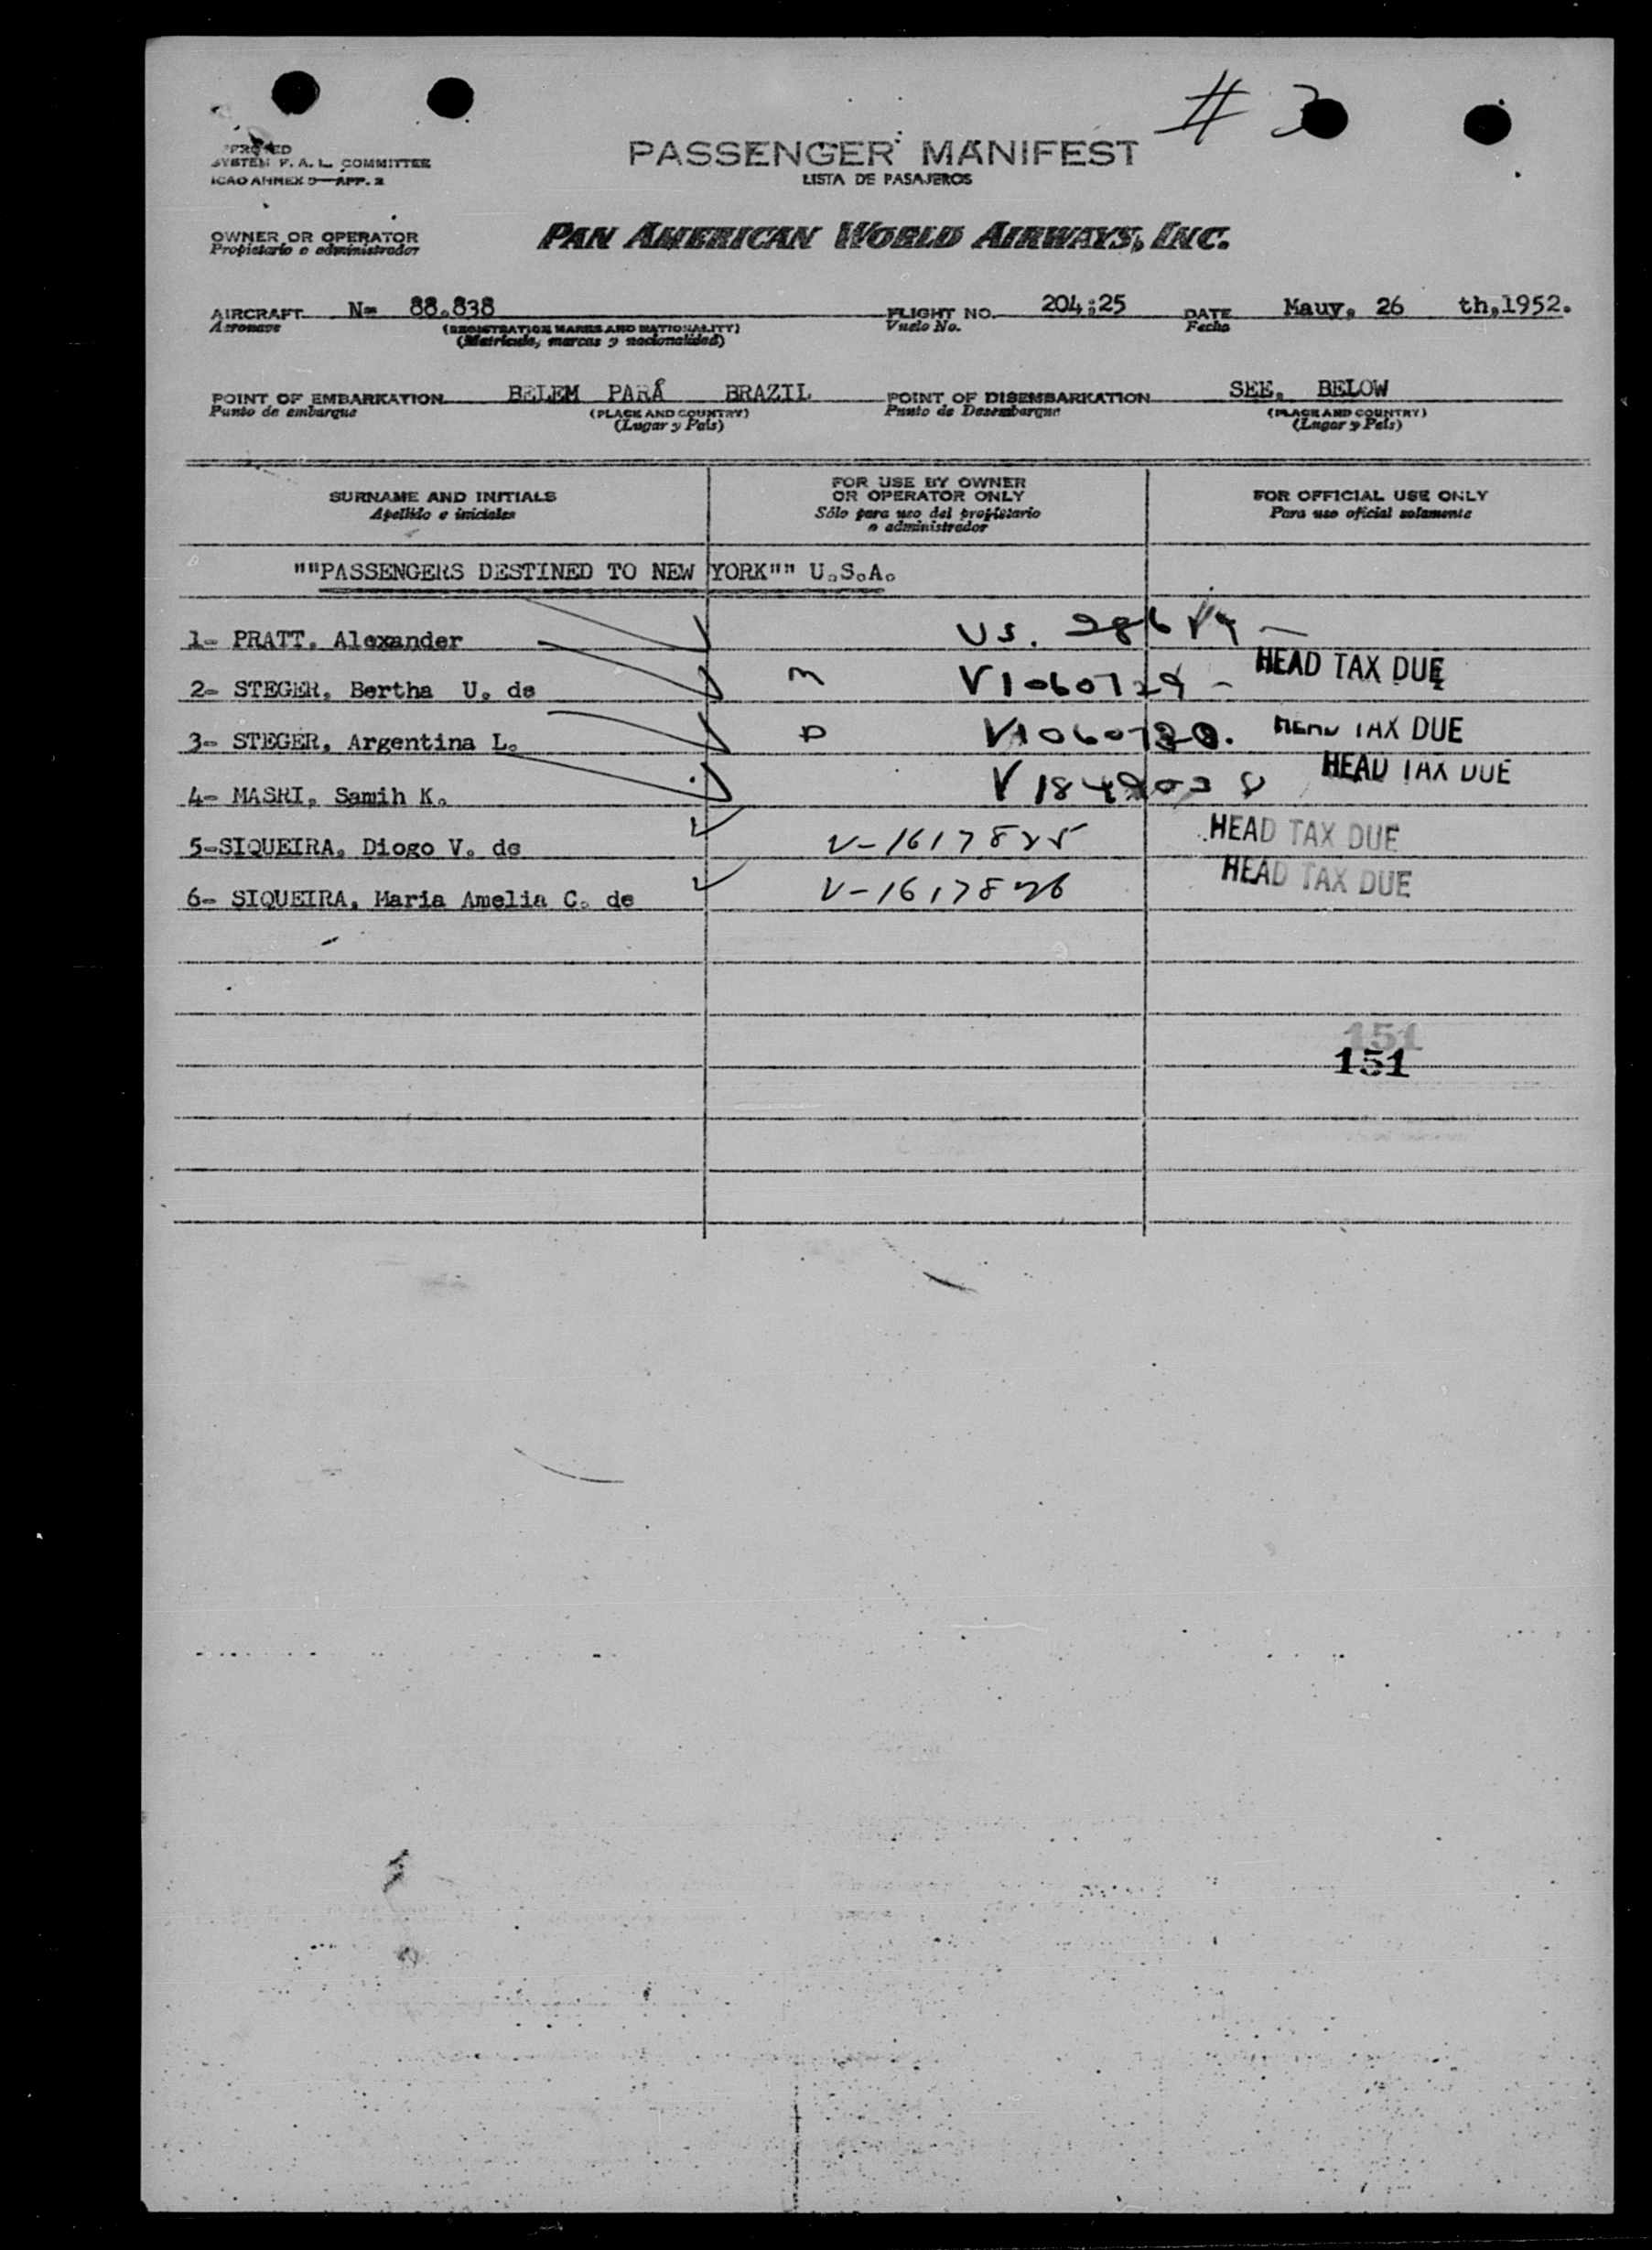 # 3
SYSTEM F. A. L. COMMITTEE
ICAO ANNEX 9—APP. 2
PASSENGER MANIFEST
LISTA DE PASAJEROS
OWNER OR OPERATOR
Propietario o administrador
PAN AMERICAN WORLD AIRWAYS, INC.
AIRCRAFT N= 88.838 FLIGHT NO. 204:25 DATE Mauy, 26 th,1952.
Aeronave (REGISTRATION MARKS AND NATIONALITY) Vuelo No. Fecha
(Matricula, marcas y nacionalidad)
POINT OF EMBARKATION BELEM PARÁ BRAZIL POINT OF DISEMBARKATION SEE, BELOW
Punto de embarque (PLACE AND COUNTRY) Punto de Desembarque (PLACE AND COUNTRY)
(Lugar y País) (Lugar y País)
SURNAME AND INITIALS
Apellido e iniciales
FOR USE BY OWNER
OR OPERATOR ONLY
Sólo para uso del propietario
o administrador
FOR OFFICIAL USE ONLY
Para uso oficial solamente
""PASSENGERS DESTINED TO NEW YORK"" U.S.A.
1- PRATT, Alexander US.
2- STEGER, Bertha U. de M V1060729 - HEAD TAX DUE
3- STEGER, Argentina L. D HEAD TAX DUE
4- MASRI, Samih K. HEAD TAX DUE
5-SIQUEIRA, Diogo V. de V-1617825 HEAD TAX DUE
6- SIQUEIRA, Maria Amelia C. de V-1617826 HEAD TAX DUE
151
151